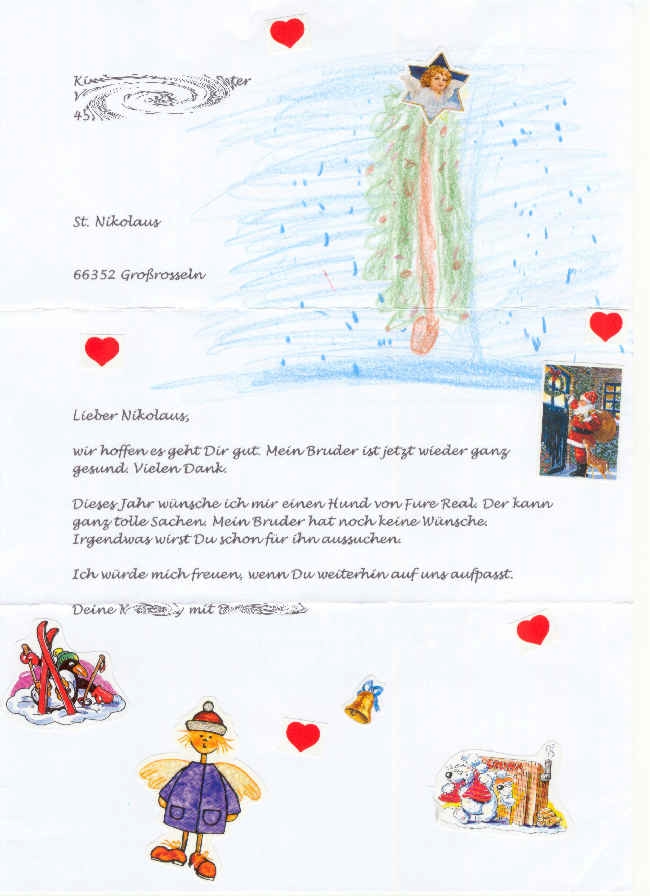 St. Nikolaus
66352 Großrosseln
Lieber Nikolaus,
wir hoffen es geht Dir gut. Mein Bruder ist jetzt wieder ganz
gesund. Vielen Dank.
Dieses Jahr wünsche ich mir einen Hund von Fure Real. Der kann
ganz tolle Sachen. Mein Bruder hat noch keine Wünsche.
Irgendwas wirst Du schon für ihn aussuchen.
Ich würde mich freuen, wenn Du weiterhin auf uns aufpasst.
Deine mit